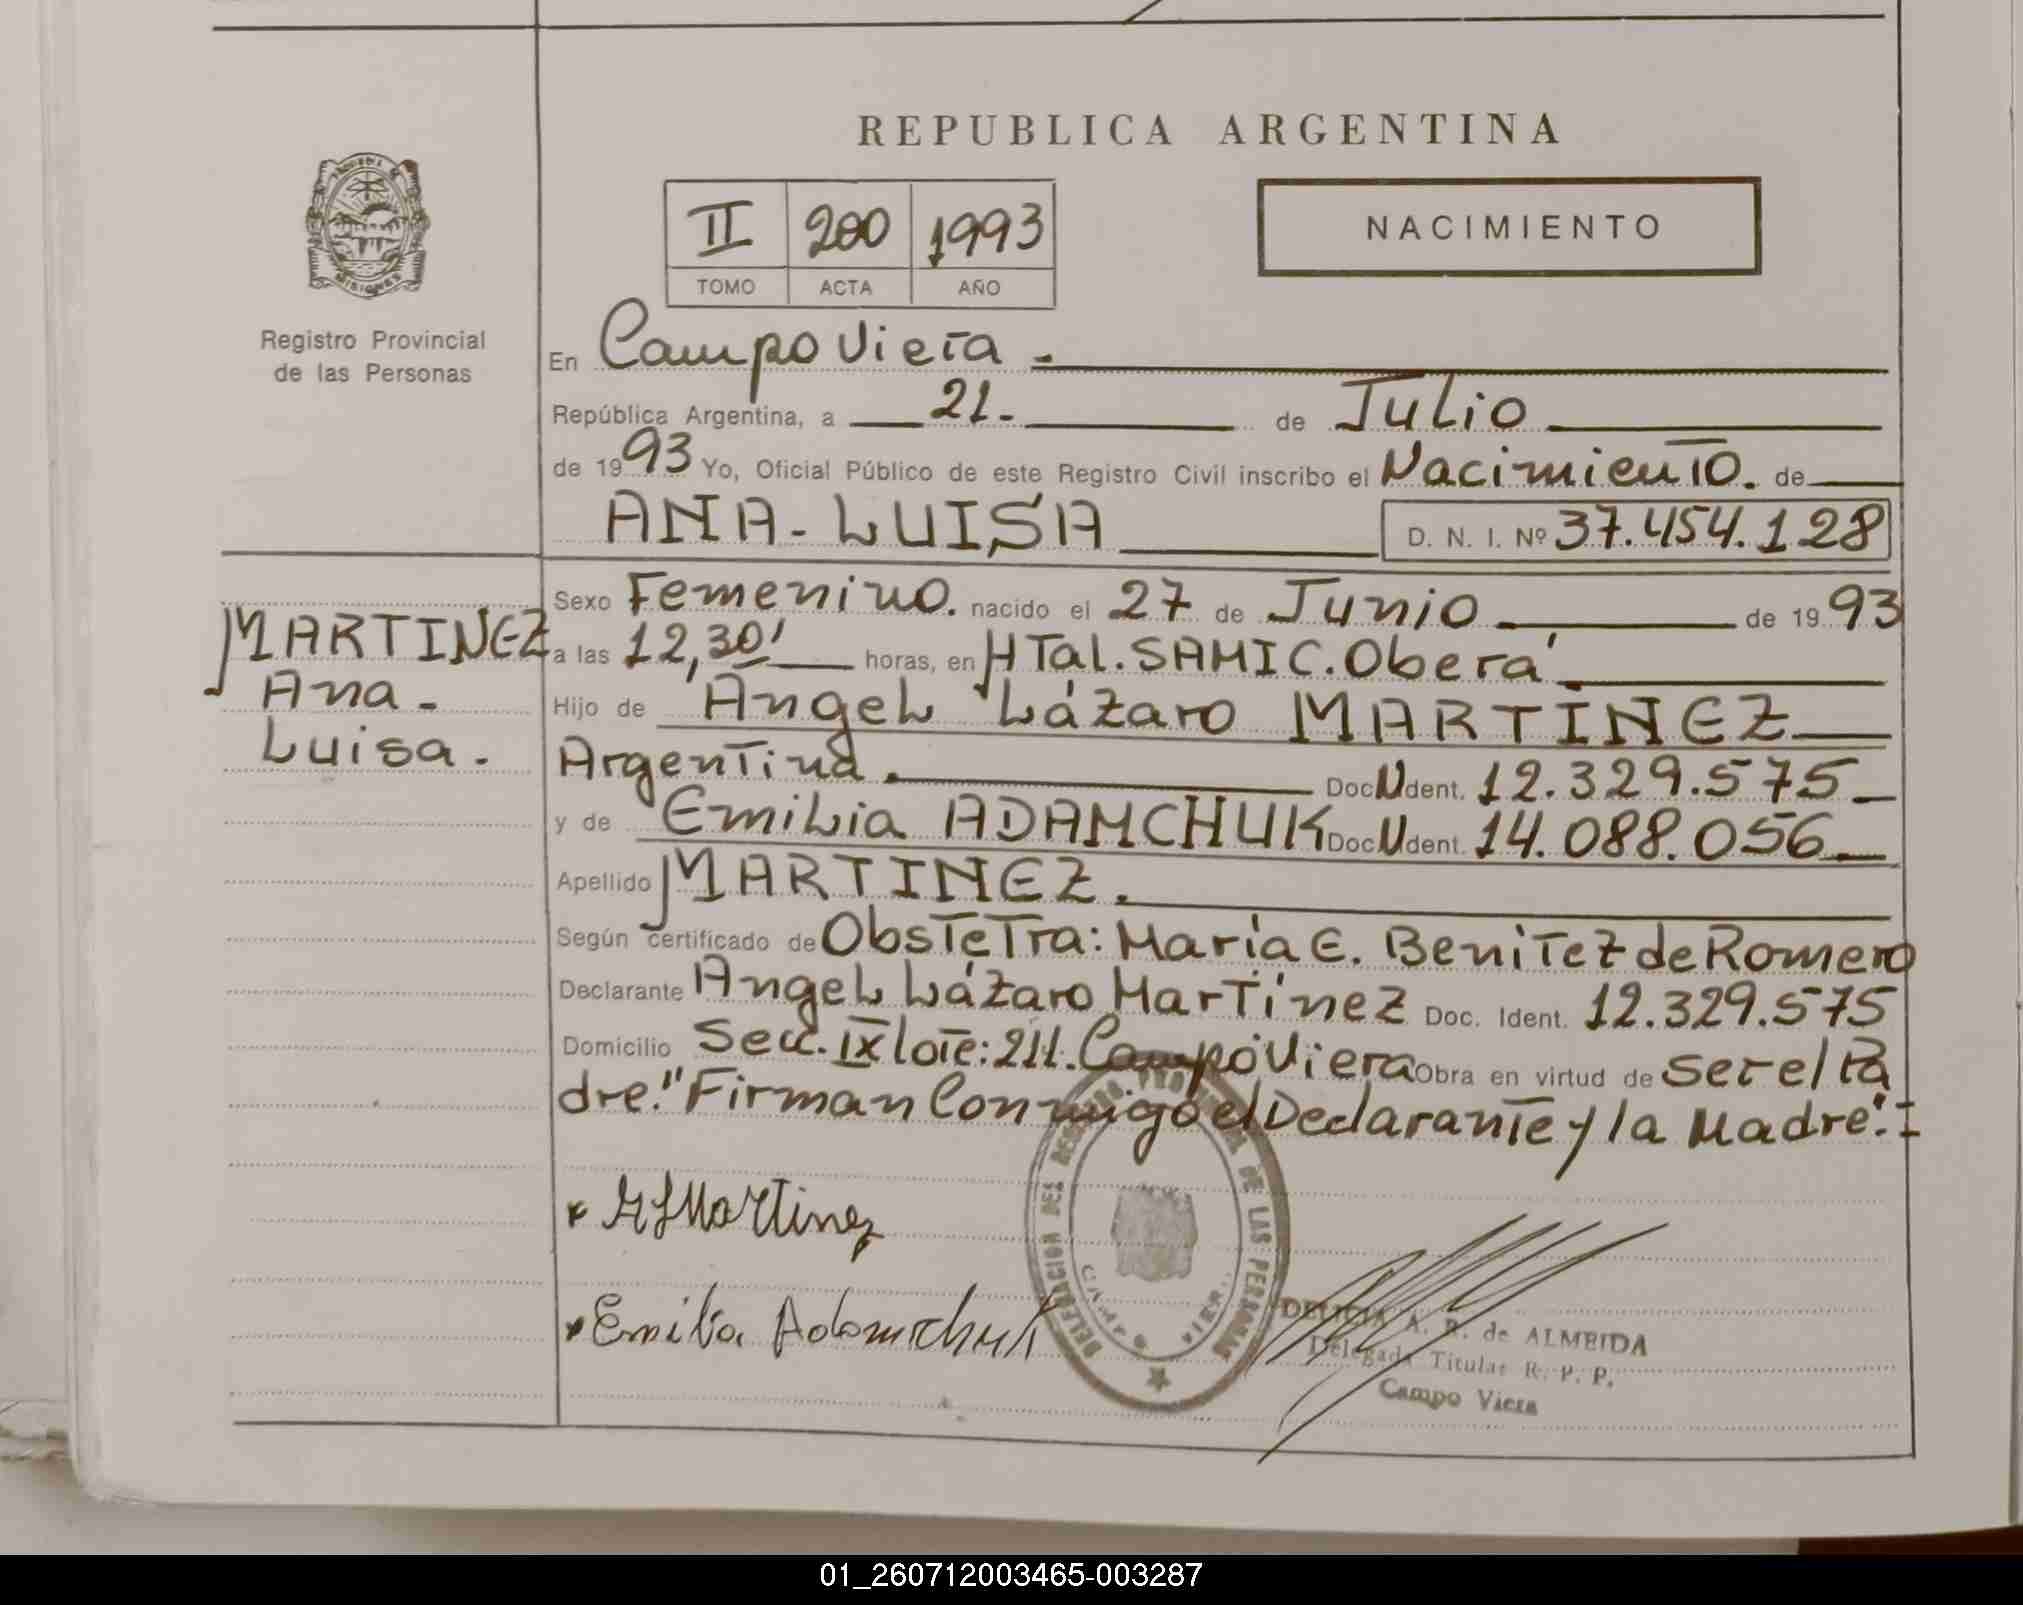 REPUBLICA ARGENTINA
II 200 1993
TOMO ACTA AÑO
NACIMIENTO
MISIONES
Registro Provincial
de las Personas
En Campo Viera.
República Argentina, a 21. de Julio
de 1993 Yo, Oficial Público de este Registro Civil inscribo el Nacimiento. de
ANA - LUISA D. N. I. Nº 37.454.128
MARTINEZ
Ana -
Luisa.
Sexo Femenino. nacido el 27 de Junio de 1993
a las 12,30' horas, en HTal. SAMIC. Oberá
Hijo de Angel Lázaro MARTINEZ
Argentina. Doc U dent. 12.329.575
y de Emilia ADAMCHUK Doc U dent. 14.088.056
Apellido MARTINEZ.
Según certificado de Obstetra: María E. Benitez de Romero
Declarante Angel Lázaro Martínez Doc. Ident. 12.329.575
Domicilio Secc. IX lote: 211. Campo Viera Obra en virtud de ser el Pa
dre." Firman Conmigo el Declarante y la Madre".
A L Martinez
Emilia Adamchuk
DELEGACION DEL REGISTRO PROVINCIAL DE LAS PERSONAS
CAMPO VIERA
DELICIA A. R. de ALMEIDA
Delegada Titular R. P. P.
Campo Viera
01_260712003465-003287